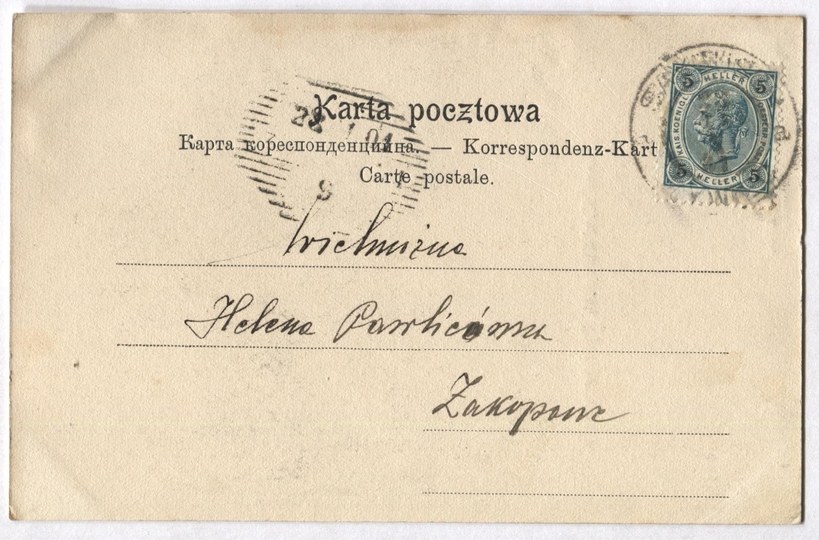 Karta pocztowa
Карта кореспонденцийна. — Korrespondenz-Kart
Carte postale.
5 HELLER 5
KAIS. KOENIGL.
5 HELLER 5
9
Wielmożna
Helena Pawlicówna
Zakopane